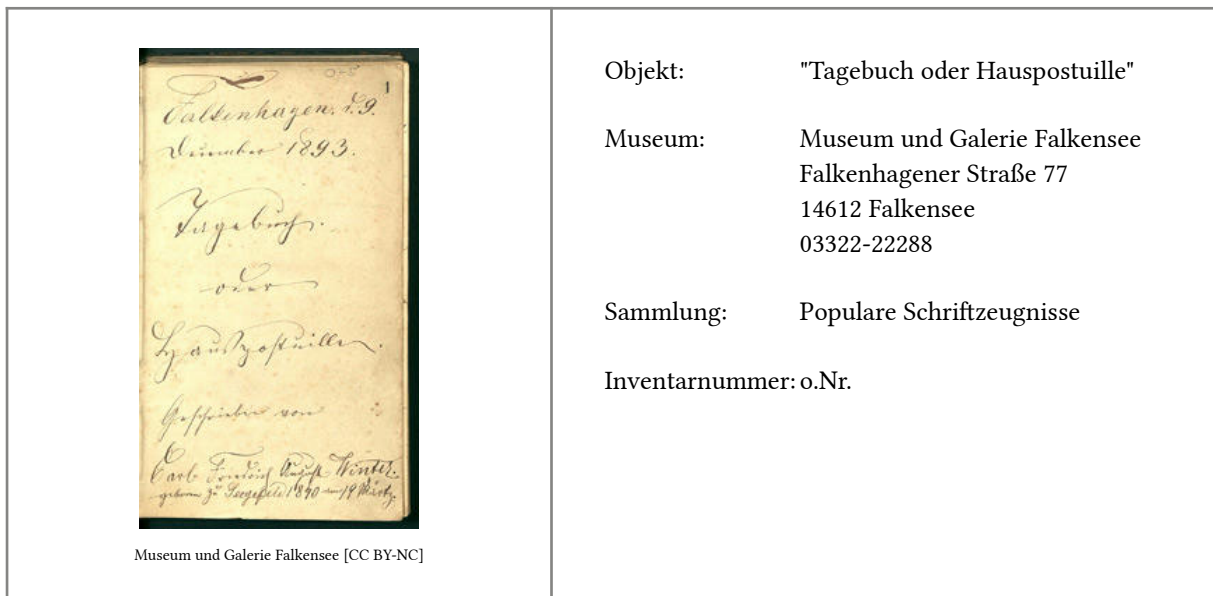 1
Falkenhagen. d. 9.
Dezember 1893.
Tagebuch.
oder
Hauspostuille.
Geschrieben von
Carl Friedrich August Winter.
geboren zu Seegefeld 1840 19 März.
Museum und Galerie Falkensee [CC BY-NC]
Objekt: "Tagebuch oder Hauspostuille"
Museum: Museum und Galerie Falkensee
Falkenhagener Straße 77
14612 Falkensee
03322-22288
Sammlung: Populare Schriftzeugnisse
Inventarnummer: o.Nr.